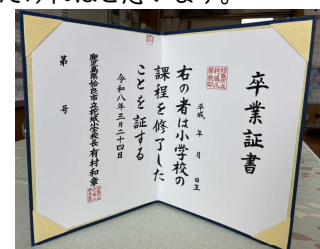 だければと思います。
卒業証書
平成 年 月 日生
右の者は小学校の
課程を修了した
ことを証する
令和八年三月二十四日
鹿児島県姶良市立柁城小学校長 有村和章
第 号